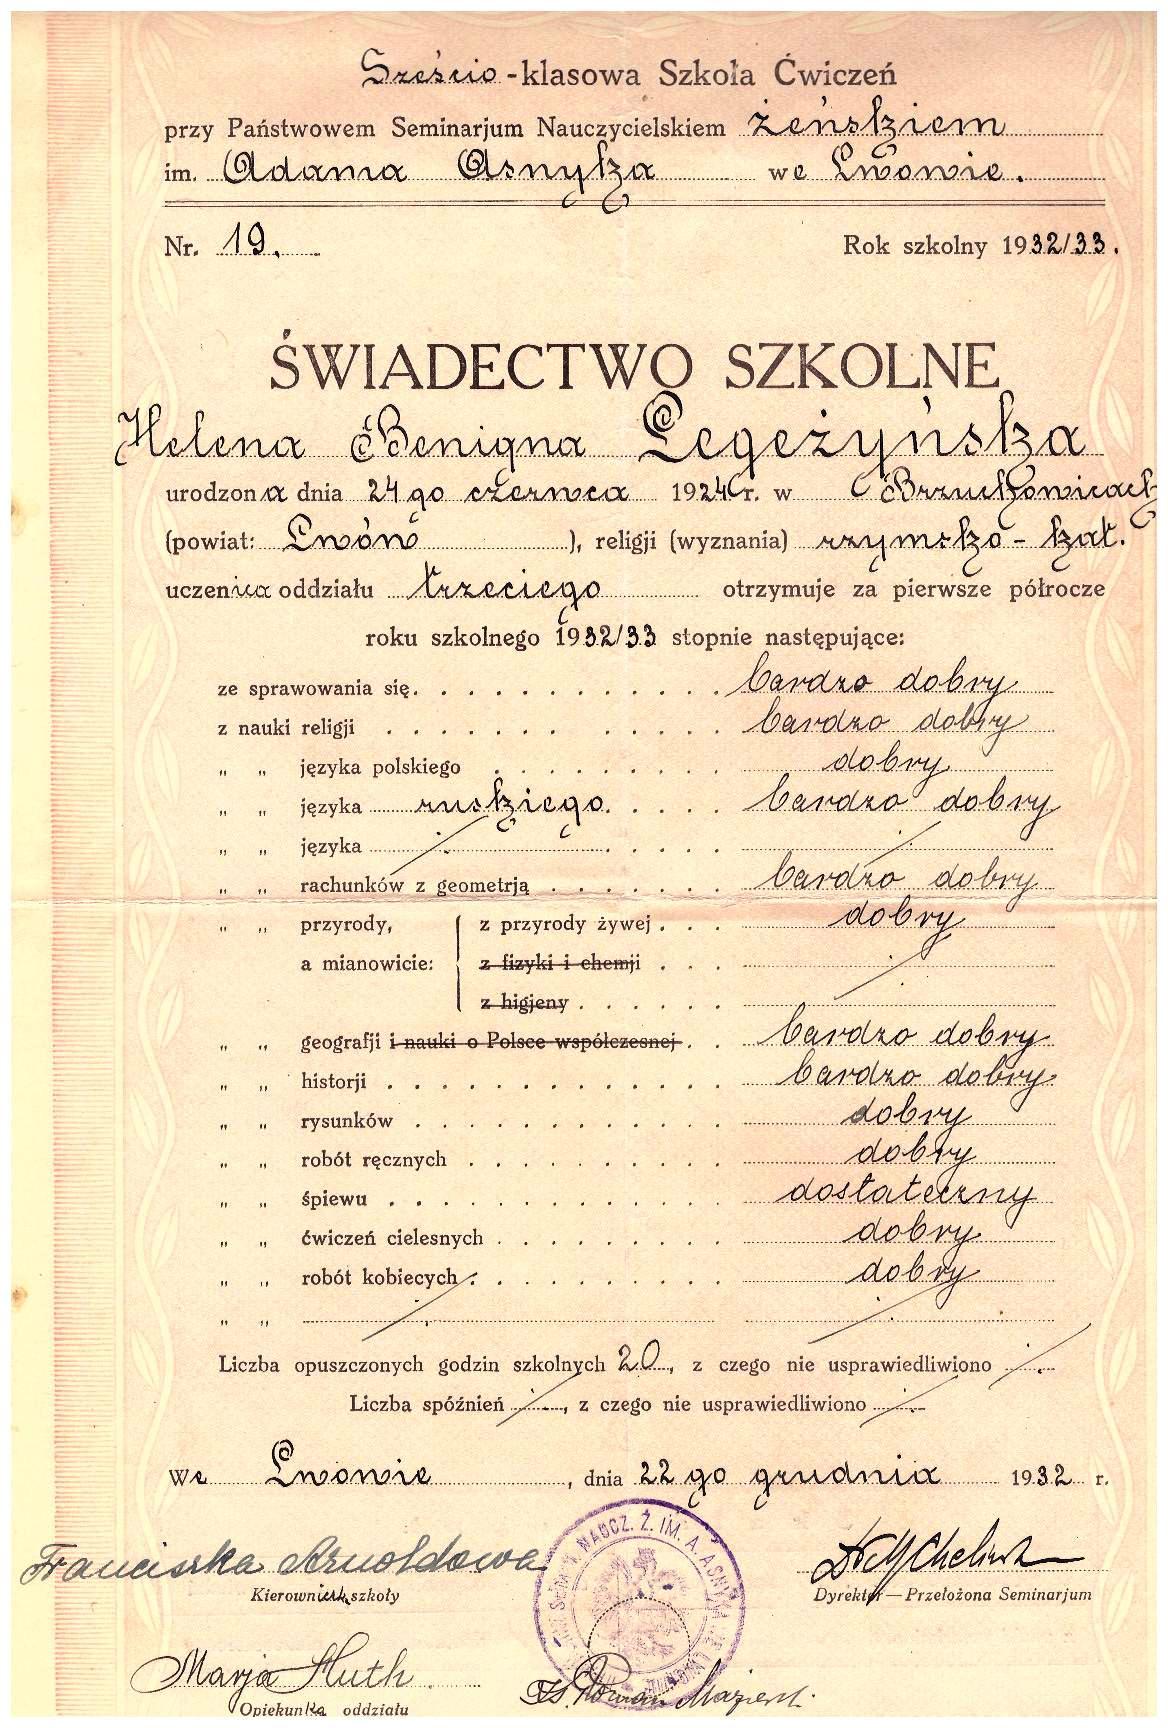 Sześcio-klasowa Szkoła Ćwiczeń
przy Państwowem Seminarjum Nauczycielskiem żeńskiem
im. Adama Asnyka we Lwowie.
Nr. 19. Rok szkolny 1932/33.
ŚWIADECTWO SZKOLNE
Helena Benigna Legeżyńska
urodzona dnia 24 go czerwca 1924 r. w Brzuchowicach
(powiat: Lwów ), religji (wyznania) rzymsko-kat.
uczenica oddziału trzeciego otrzymuje za pierwsze półrocze
roku szkolnego 1932/33 stopnie następujące:
ze sprawowania się. . . . . . . . . . . . . bardzo dobry
z nauki religji . . . . . . . . . . . . bardzo dobry
„ „ języka polskiego . . . . . . . . . dobry
„ „ języka ruskiego . . . . . bardzo dobry
„ „ języka . . . . .
„ „ rachunków z geometrją . . . . . . . bardzo dobry
„ „ przyrody, z przyrody żywej . . . dobry
a mianowicie: z fizyki i chemji . . .
z higjeny . . . . . .
„ „ geografji i nauki o Polsce współczesnej . . bardzo dobry
„ „ historji . . . . . . . . . . . . . bardzo dobry
„ „ rysunków . . . . . . . . . . . . dobry
„ „ robót ręcznych . . . . . . . . . . dobry
„ „ śpiewu . . . . . . . . . . . . . dostateczny
„ „ ćwiczeń cielesnych . . . . . . . . . dobry
„ „ robót kobiecych . . . . . . . . . . dobry
„ „
Liczba opuszczonych godzin szkolnych 20, z czego nie usprawiedliwiono
Liczba spóźnień , z czego nie usprawiedliwiono
We Lwowie , dnia 22 go grudnia 1932 r.
NAUCZ. Ż. IM. A. ASNYKA WE LWOWIE
Franciszka Arnoldowa
Kierownik szkoły Dyrektor—Przełożona Seminarjum
Marja Huth Ks. Roman
Opiekunka oddziału